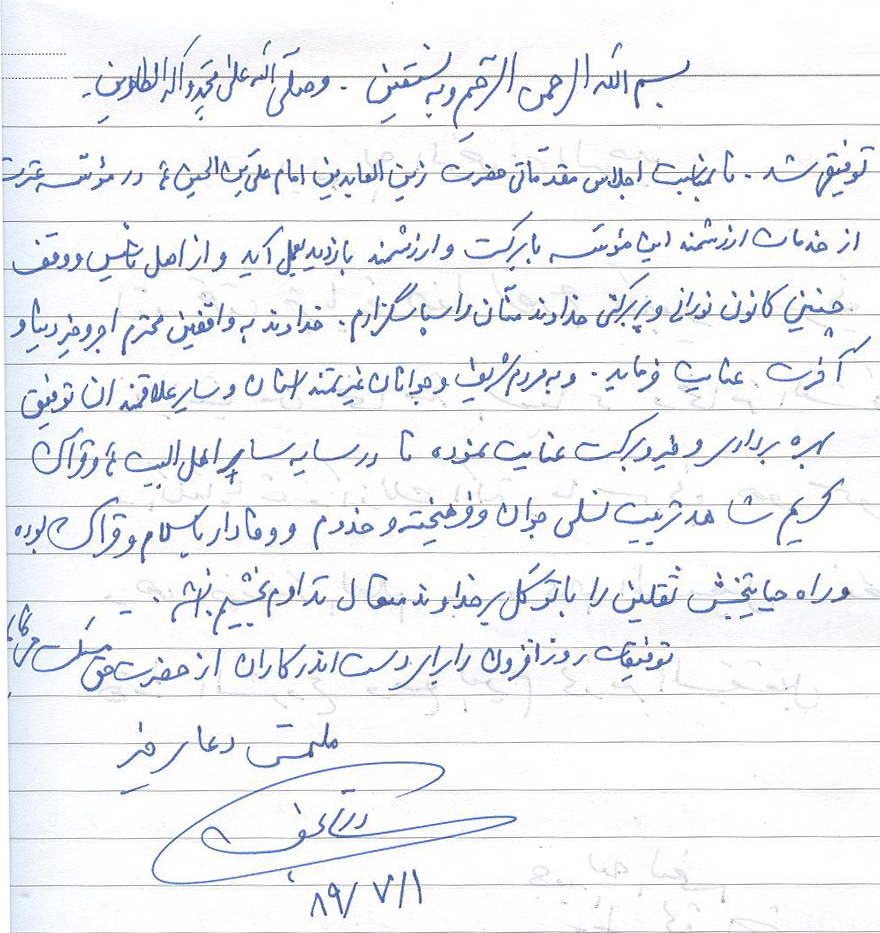 بسم الله الرحمن الرحیم و به نستعین . و صلی الله علی محمد و آله الطاهرین .
توفیقی شد . تا بمناسبت اجلاس مقدماتی حضرت زین العابدین امام علی بن الحسین ع در مؤسسه عترت
از خدمات ارزشمند این مؤسسه با برکت و ارزشمند بازدید بعمل آید و از اصل تأسیس و وقف
چنین کانون نورانی و پربرکتی خداوند منّان را سپاسگزارم . خداوند به واقفین محترم اجر و خیر دنیا و
آخرت عنایت فرماید . و به مردم شریف و جوانان غیرتمند استان و سایر علاقمندان توفیق
بهره برداری و خیر و برکت عنایت نموده تا در سایه سایر اهل البیت ع و قرآن
کریم شاهد تربیت نسلی جوان و فرهیخته و خدوم و وفادار باسلام و قرآن بوده
و راه حیاتبخش ثقلین را با توکل بر خداوند متعال تداوم بخشیم انشاءالله .
توفیقات روز افزون را برای دست اندرکاران از حضرت حق مسئلت
ملتمس دعای خیر
۸۹/۷/۱